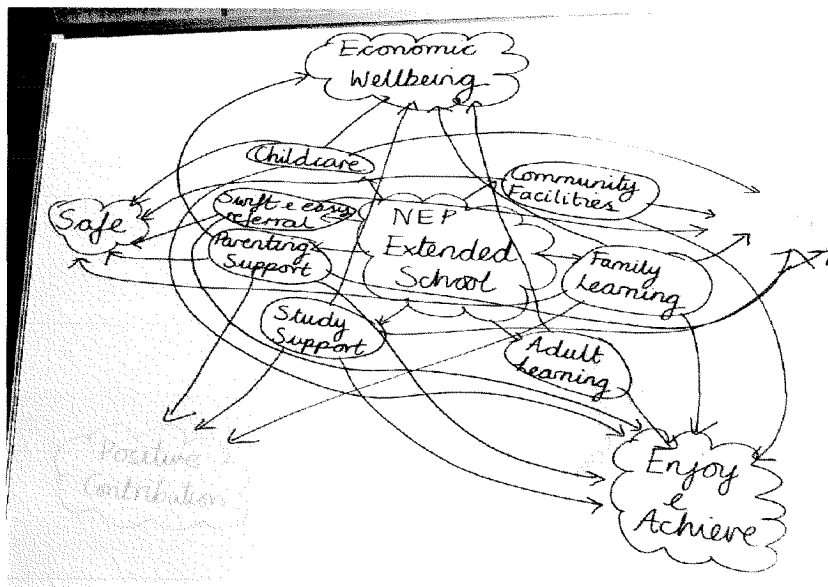 Economic
Wellbeing
Childcare
Community
Facilities
Safe
Swift e easy
referral
NEP
Extended
School
Parenting
Support
Family
Learning
Study
Support
Adult
Learning
Positive
Contribution
Enjoy
e
Achieve